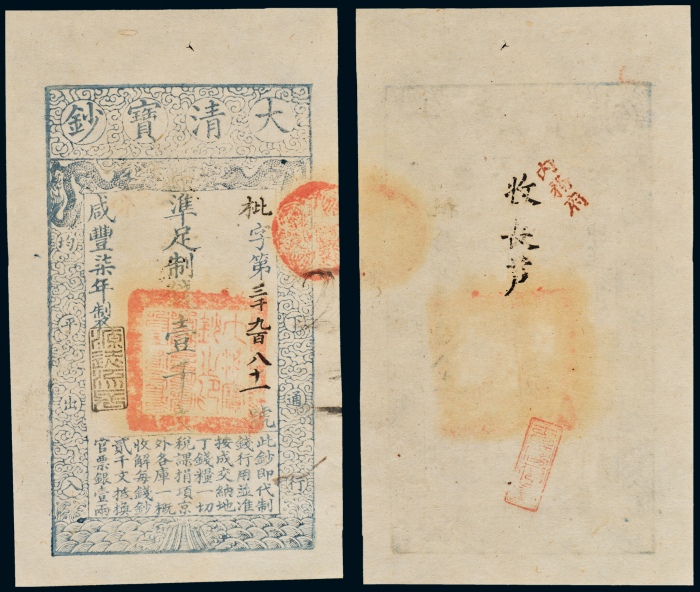 大清寶鈔
枇字第三千九百八十一號
準足制錢壹千文
咸豐柒年製
均平出入
通行
此鈔即代制
錢行用並准
按成交納地
丁錢糧一切
稅課捐項京
外各庫一概
收解每錢鈔
貳千文抵換
官票銀壹兩
大清寶鈔之印
內務府
收長芦